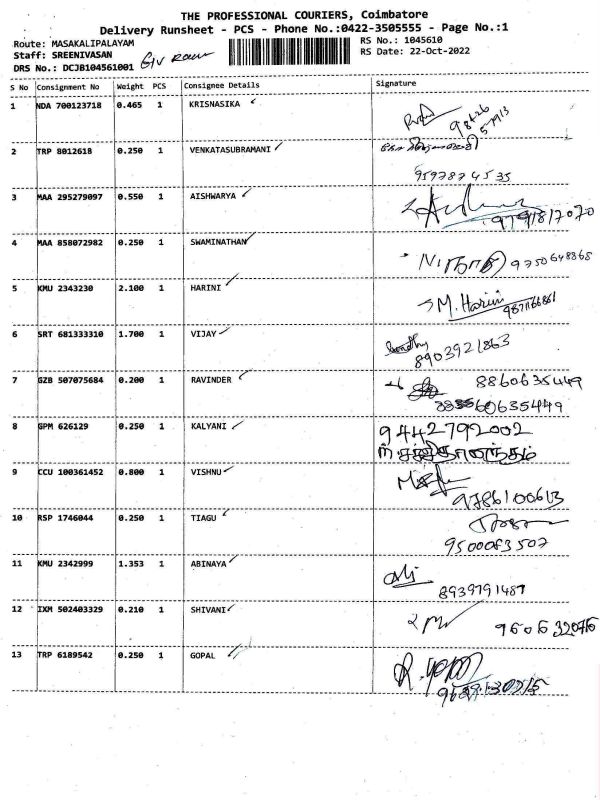 THE PROFESSIONAL COURIERS, Coimbatore
Delivery Runsheet - PCS - Phone No.:0422-3505555 - Page No.:1
Route: MASAKALIPALAYAM RS No.: 1045610
Staff: SREENIVASAN RS Date: 22-Oct-2022
DRS No.: DCJB104561001
S No Consignment No Weight PCS Consignee Details Signature
1 NDA 700123718 0.465 1 KRISNASIKA
2 TRP 8012618 0.250 1 VENKATASUBRAMANI
3 MAA 295279097 0.550 1 AISHWARYA
4 MAA 858072982 0.250 1 SWAMINATHAN
9750648865
5 KMU 2343230 2.100 1 HARINI M. Harini
6 SRT 681333310 1.700 1 VIJAY
8903921863
7 GZB 507075684 0.200 1 RAVINDER 8860635449
8 GPM 626129 0.250 1 KALYANI 9442792002
9 CCU 100361452 0.800 1 VISHNU
9786100613
10 RSP 1746044 0.250 1 TIAGU
9500083507
11 KMU 2342999 1.353 1 ABINAYA
8939791487
12 IXM 502403329 0.210 1 SHIVANI
13 TRP 6189542 0.250 1 GOPAL